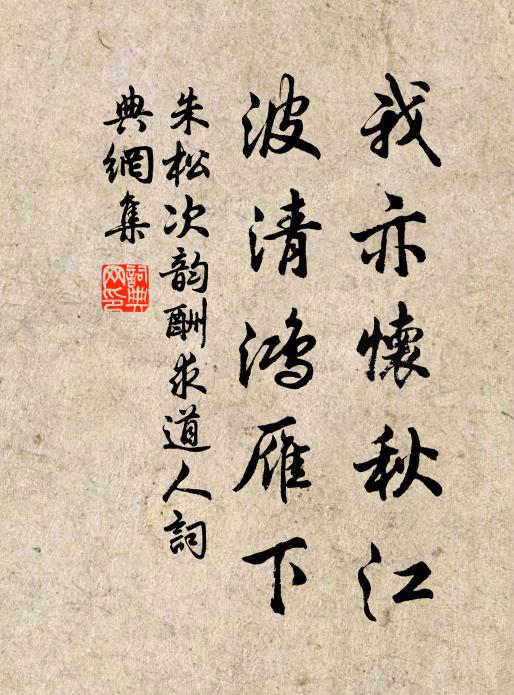 我亦懷秋江
波清鴻雁下
朱松次韵酬求道人詞
典網集
詞典
网印